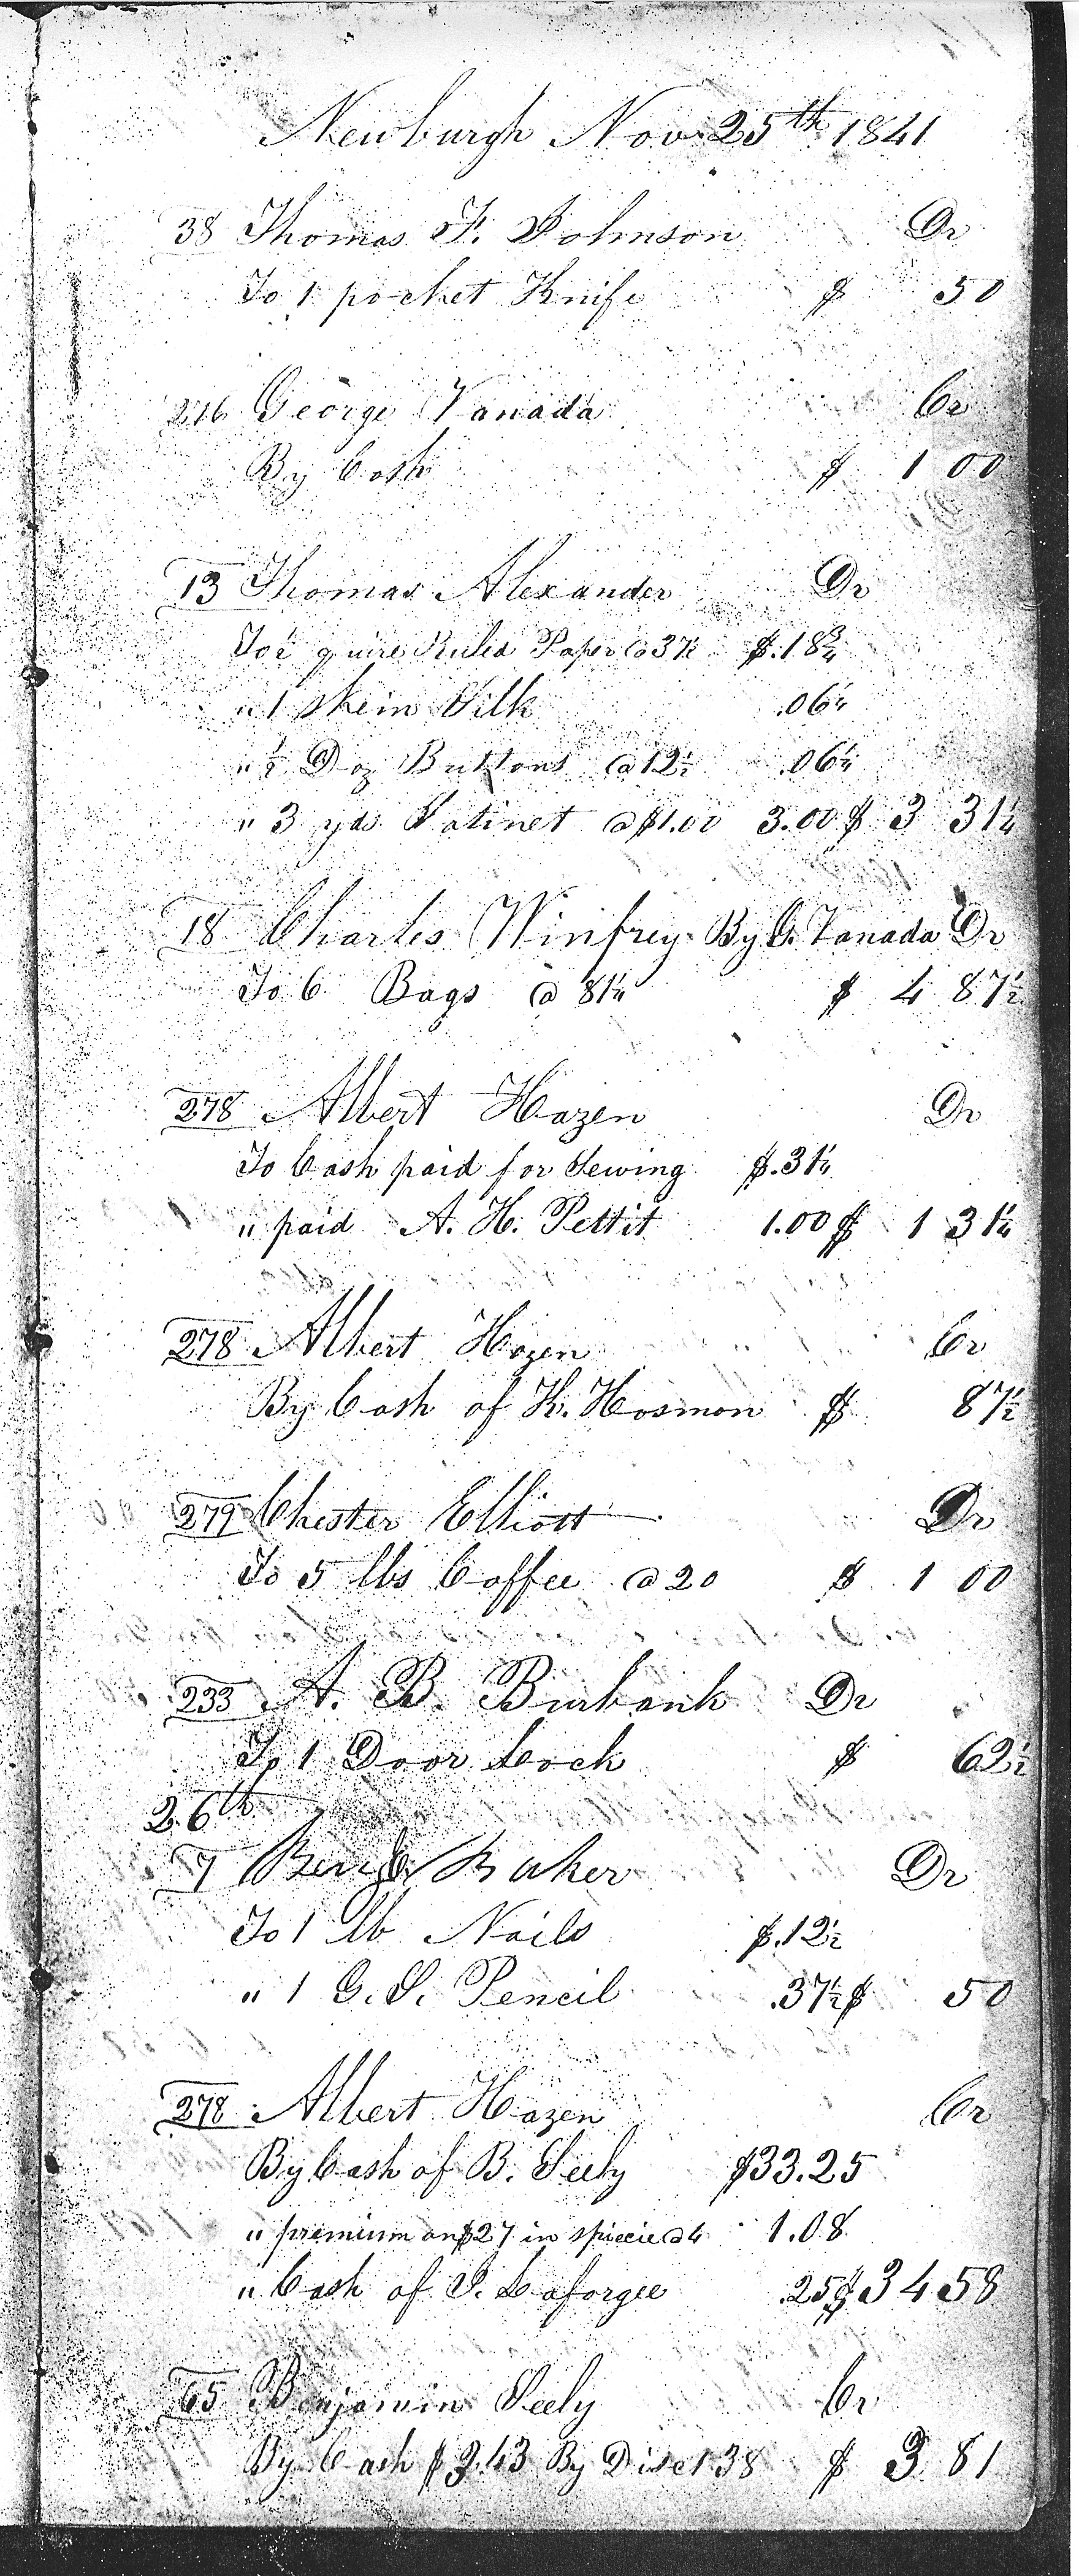 Newburgh Nov 25th 1841
38 Thomas F. Johnson Dr
To 1 pocket Knife $ 50
216 George Vanada Cr
By Cash $ 1 00
13 Thomas Alexander Dr
To ½ quire Ruled Paper @ 37½ $.18¾
" 1 Skein Silk .06¼
" ½ Doz Buttons @ 12½ .06¼
" 3 yds Satinet @ $1.00 3.00 $ 3 31¼
18 Charles Winfrey By G. Vanada Dr
To 6 Bags @ 81¼ $ 4 87½
278 Albert Hazen Dr
To Cash paid for Sewing $.31¼
" paid A. H. Pettit 1.00 $ 1 31¼
278 Albert Hazen Cr
By Cash of K. Hosmon $ 87½
279 Chester Elliott Dr
To 5 lbs Coffee @ 20 $ 1 00
233 A. B. Burbank Dr
To 1 Door Lock $ 62½
26th
7 Baker Dr
To 1 lb Nails $.12½
" 1 G. S. Pencil .37½ $ 50
278 Albert Hazen Cr
By Cash of B. Seely $33.25
" premium on $27 in speecie @ 4 1.08
" Cash of J. Laforgee .25 $ 34 58
65 Benjamin Seely Cr
By Cash $3.43 By Disct 38 $ 3 81